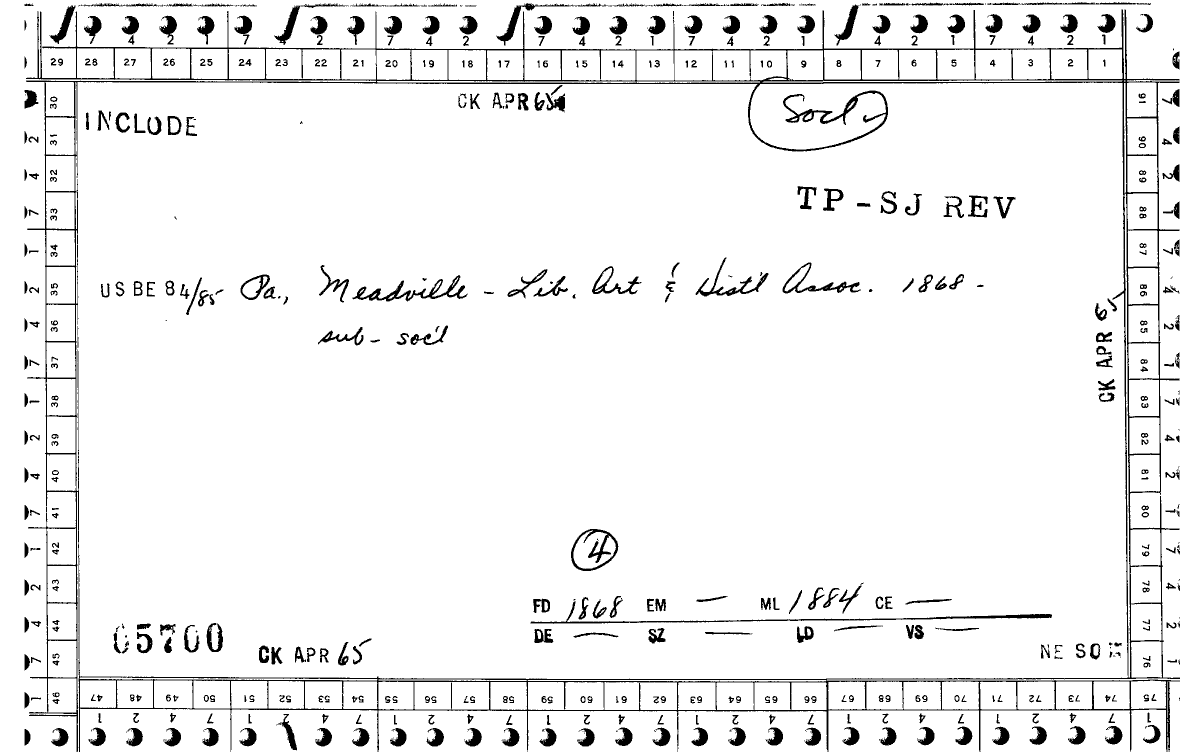 7 4 2 1 7 4 2 1 7 4 2 1 7 4 2 1 7 4 2 1 7 4 2 1 7 4 2 1
29 28 27 26 25 24 23 22 21 20 19 18 17 16 15 14 13 12 11 10 9 8 7 6 5 4 3 2 1
CK APR 65
Soc'l
INCLUDE
TP-SJ REV
US BE 84/85 Pa., Meadville - Lib. Art & Hist'l Assoc. 1868 -
sub - soc'l
CK APR 65
4
FD 1868 EM — ML 1884 CE —
DE — SZ — LD — VS —
05700
CK APR 65
NE SO
30 31 32 33 34 35 36 37 38 39 40 41 42 43 44 45 46
91 90 89 88 87 86 85 84 83 82 81 80 79 78 77 76
47 48 49 50 51 52 53 54 55 56 57 58 59 60 61 62 63 64 65 66 67 68 69 70 71 72 73 74 75
1 2 4 7 1 2 4 7 1 2 4 7 1 2 4 7 1 2 4 7 1 2 4 7 1 2 4 7